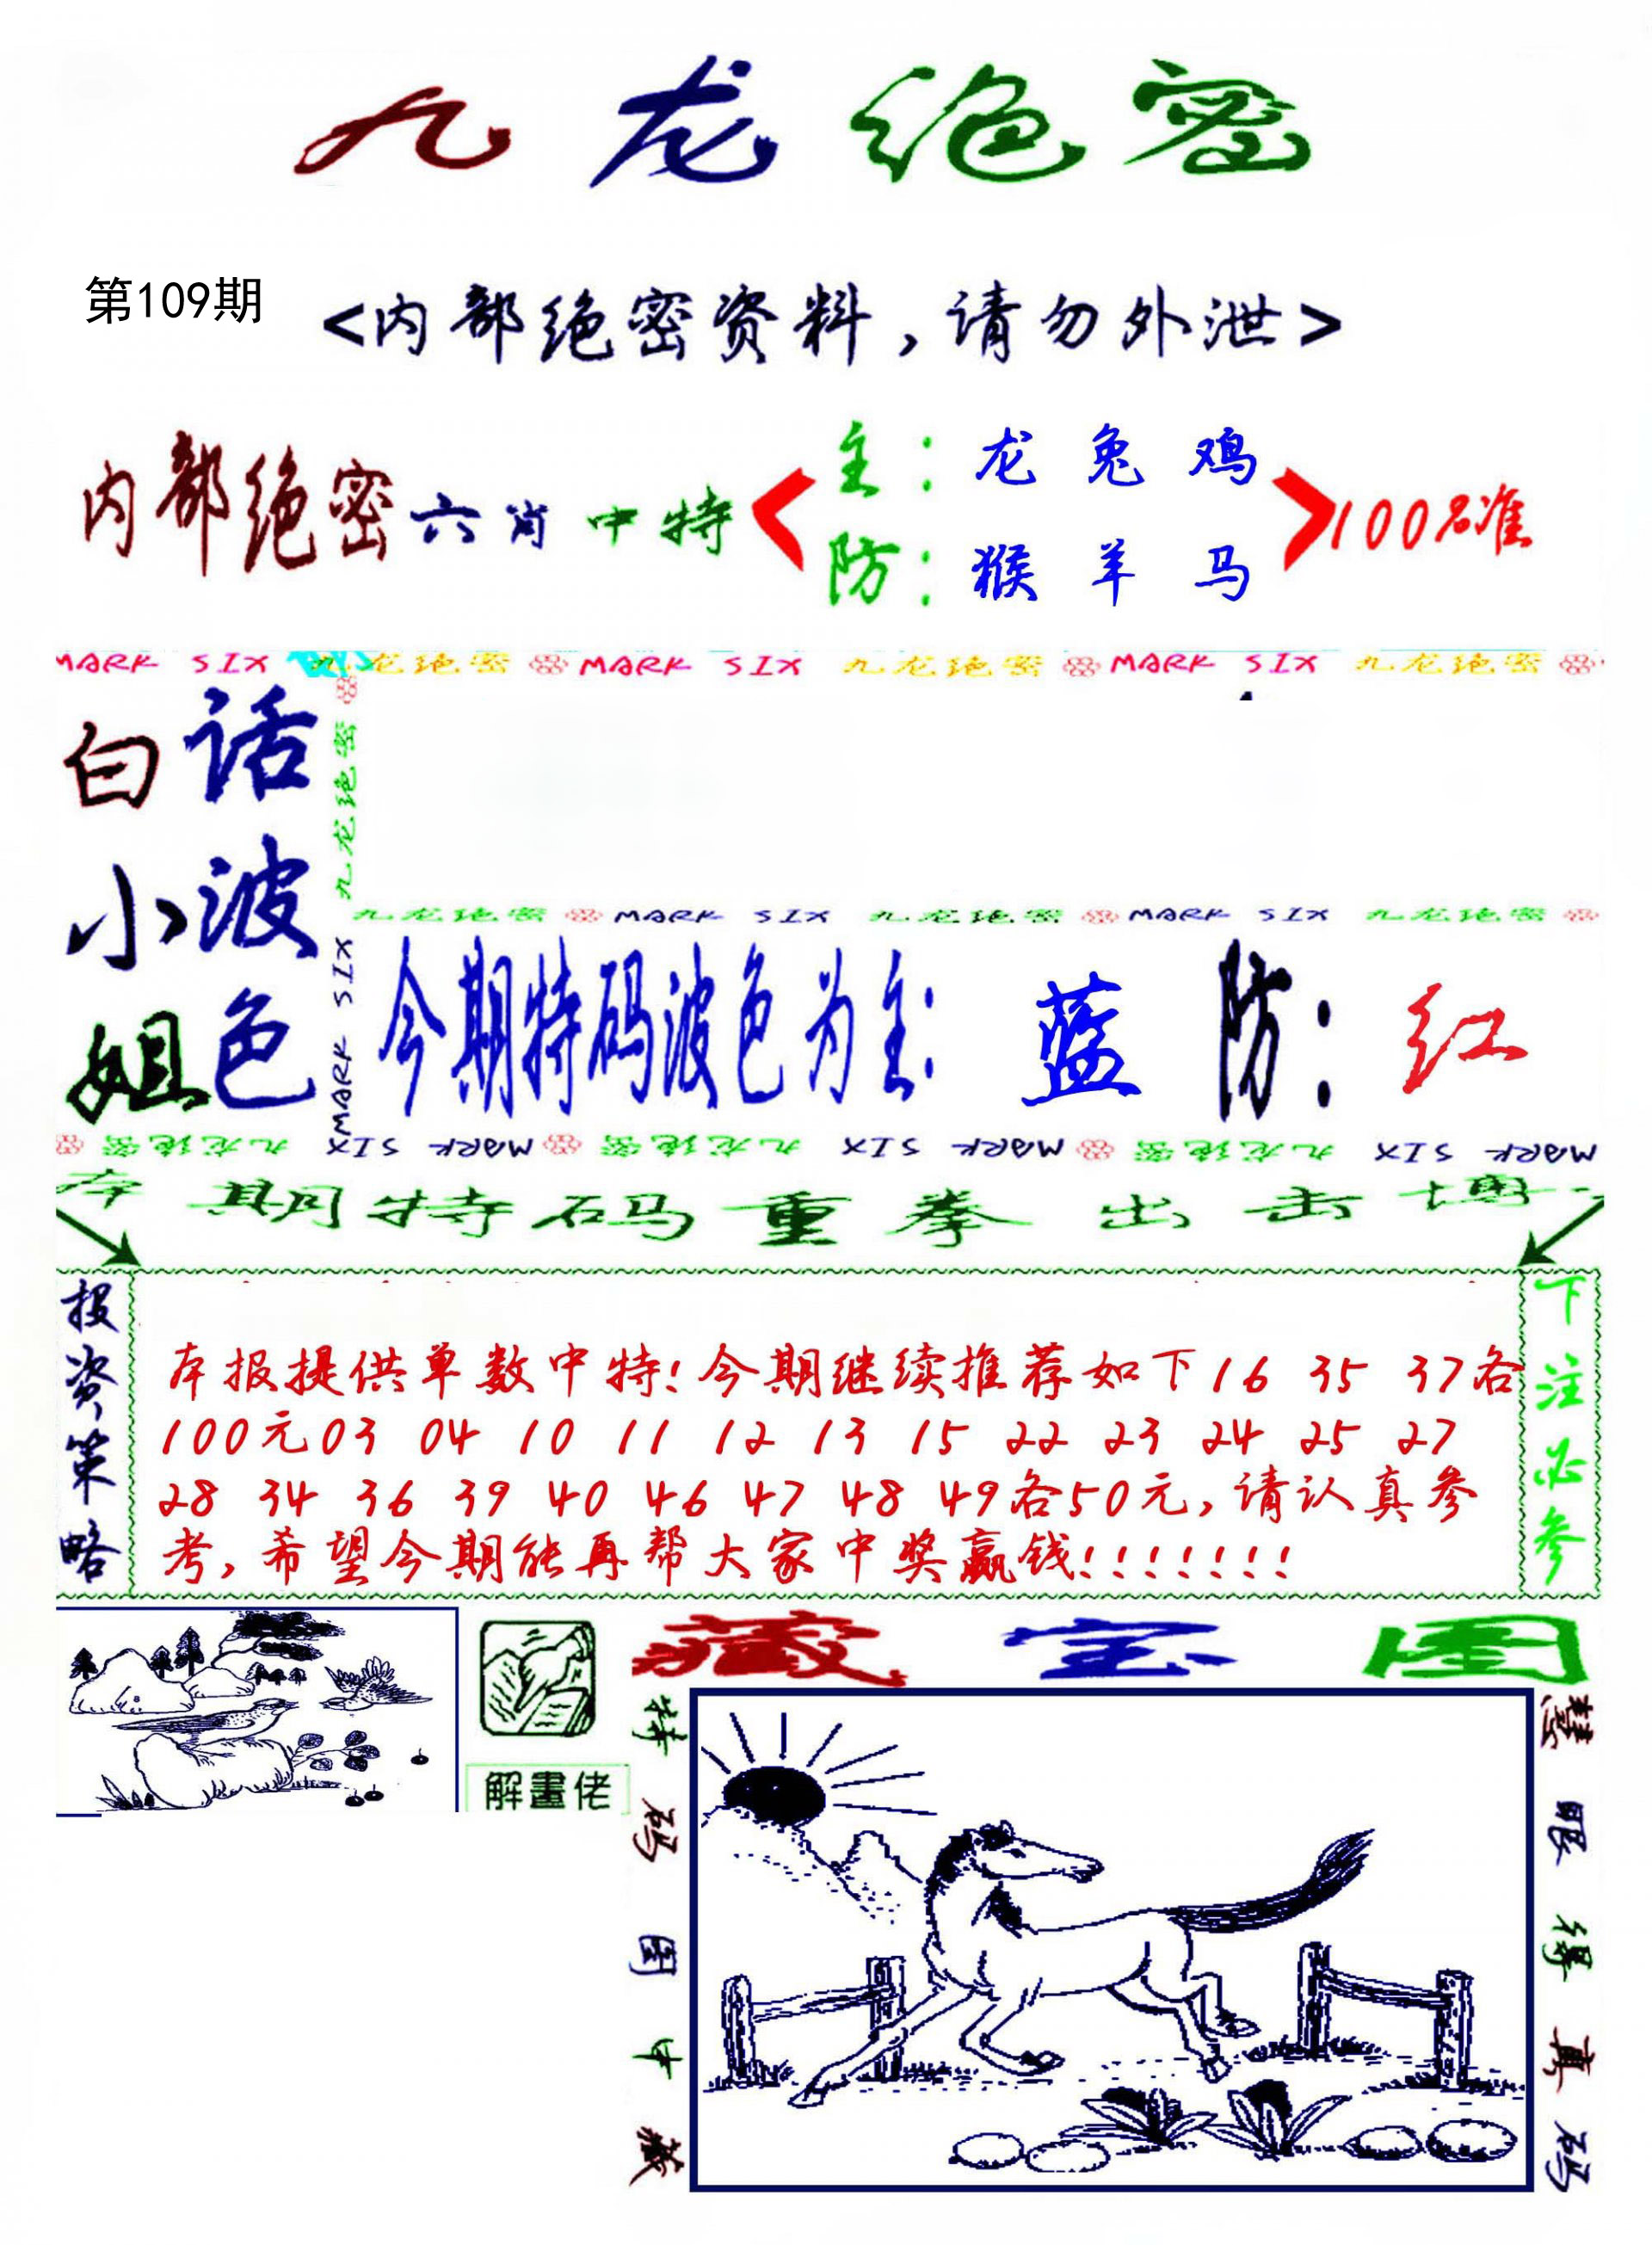 九龙绝密
第109期
<内部绝密资料,请勿外泄>
内部绝密六肖中特
主:龙兔鸡
防:猴羊马
100%准
MARK SIX 九龙绝密 MARK SIX 九龙绝密 MARK SIX 九龙绝密
白话
小波
姐色
九龙绝密
MARK SIX
九龙绝密 MARK SIX 九龙绝密 MARK SIX 九龙绝密
今期特码波色为主:蓝 防:红
九龙绝密 MARK SIX 九龙绝密 MARK SIX 九龙绝密 MARK SIX
本期特码重拳出击博
投资策略
本报提供单数中特!今期继续推荐如下16 35 37各
100元03 04 10 11 12 13 15 22 23 24 25 27
28 34 36 39 40 46 47 48 49各50元,请认真参
考,希望今期能再帮大家中奖赢钱!!!!!!!
下注必参
解畫佬
藏宝图
特码图中藏
慧眼得真码